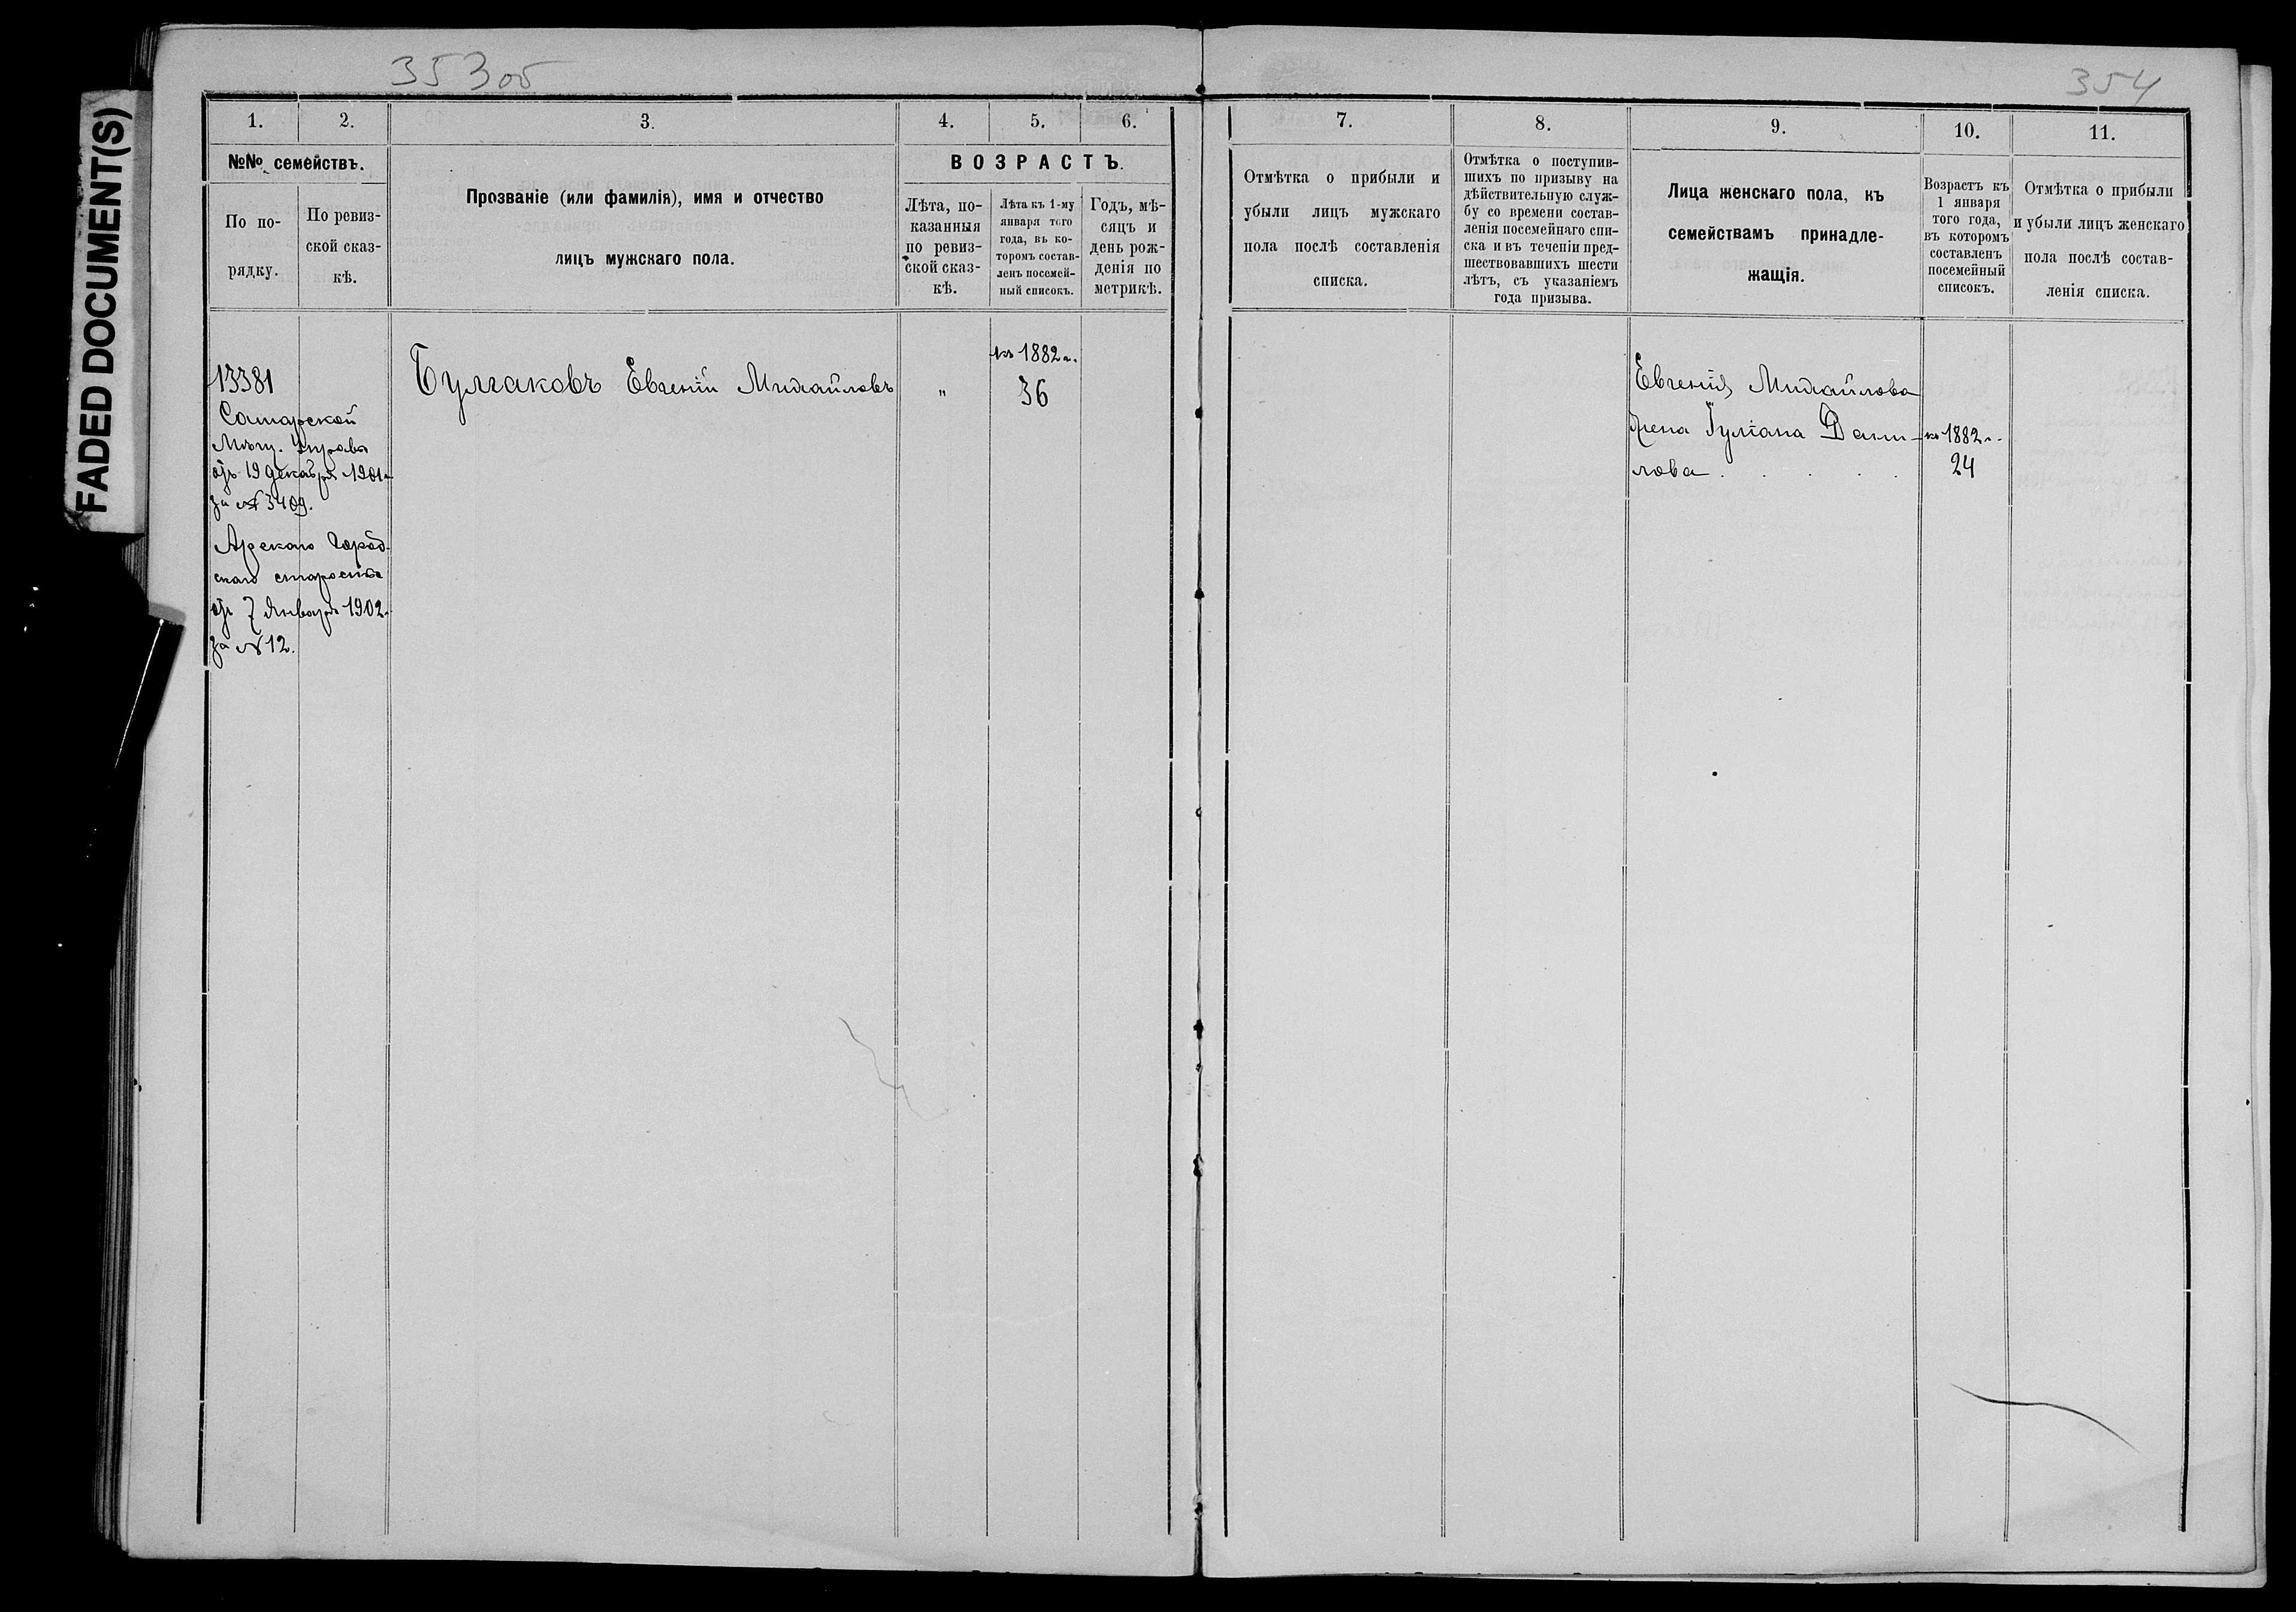 FADED DOCUMENT(S)
353об
354
1.
2.
3.
4.
5.
6.
№№ семействъ.
По по-
рядку.
По ревиз-
ской сказ-
кѣ.
Прозваніе (или фамилія), имя и отчество
лицъ мужскаго пола.
ВОЗРАСТЪ.
Лѣта, по-
казанныя
по ревиз-
ской сказ-
кѣ.
Лѣта къ 1-му
января того
года, въ ко-
торомъ состав-
ленъ посемей-
ный списокъ.
Годъ, мѣ-
сяцъ и
день рож-
денія по
метрикѣ.
13381
Самарской
Мѣщ. Управы
отъ 19 декабря 1901 г.
за № 3409.
Арскаго Город-
скаго старосты
отъ 7 Января 1902 г.
за № 12.
Булгаковъ Евгеній Михайловъ
"
къ 1882 г.
36
7.
8.
9.
10.
11.
Отмѣтка о прибыли и
убыли лицъ мужскаго
пола послѣ составленія
списка.
Отмѣтка о поступив-
шихъ по призыву на
дѣйствительную служ-
бу со времени состав-
ленія посемейнаго спи-
ска и въ теченіи пред-
шествовавшихъ шести
лѣтъ, съ указаніемъ
года призыва.
Лица женскаго пола, къ
семействамъ принадле-
жащія.
Возрастъ къ
1 января
того года,
въ которомъ
составленъ
посемейный
списокъ.
Отмѣтка о прибыли
и убыли лицъ женскаго
пола послѣ состав-
ленія списка.
Евгенія Михайлова
жена Іуліана Дани-
лова . . . . .
къ 1882 г.
24